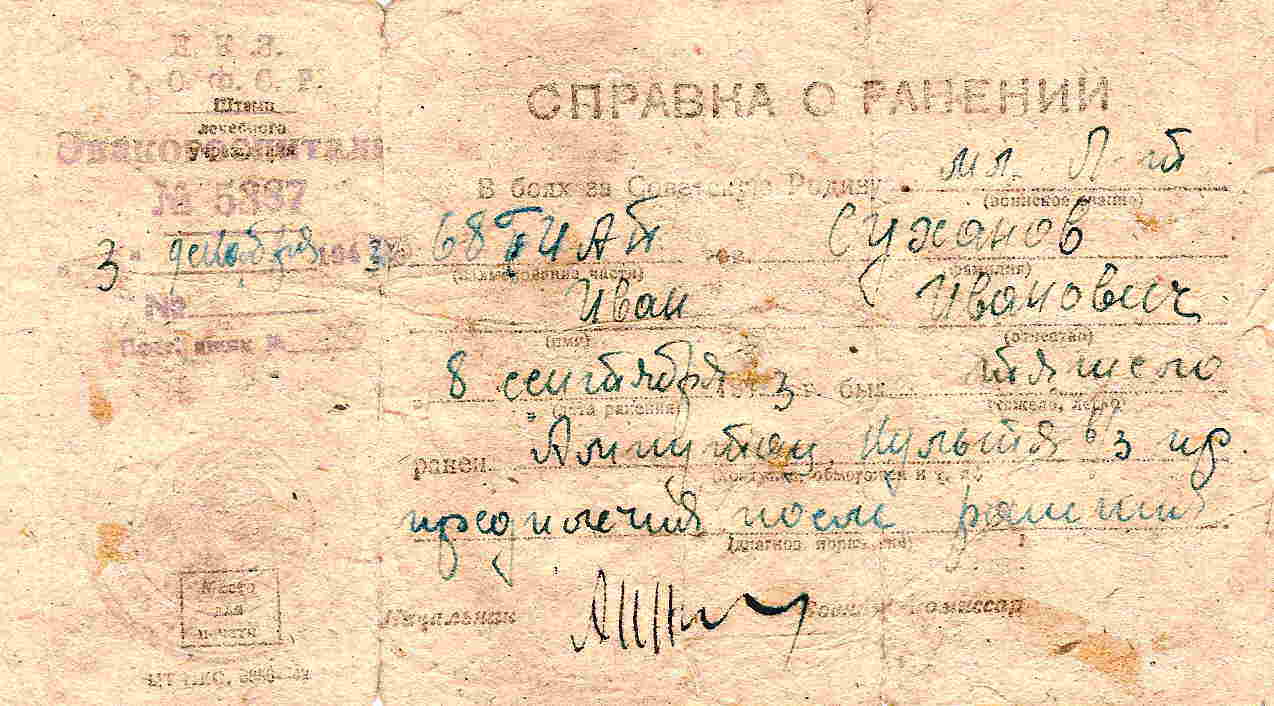 Н. К. З.
Р. С. Ф. С. Р.
Штамп
лечебного
учреждения
Эвакогоспиталь
№ 5387
"3" декабря 1943 г.
№
СПРАВКА О РАНЕНИИ
В боях за Советскую Родину мл. Л-т
(воинское звание)
68 ГИАП тов. Суханов
(наименование части) (фамилия)
Иван Иванович
(имя) (отчество)
8 сентября 1943 г. был тяжело
(дата ранения) (тяжело, легко)
ранен Ампутац культя в/3 пр.
(контужен, обморожен и т. д.)
предплечия после ранения
Начальник Военный комиссар
Место
для
печати